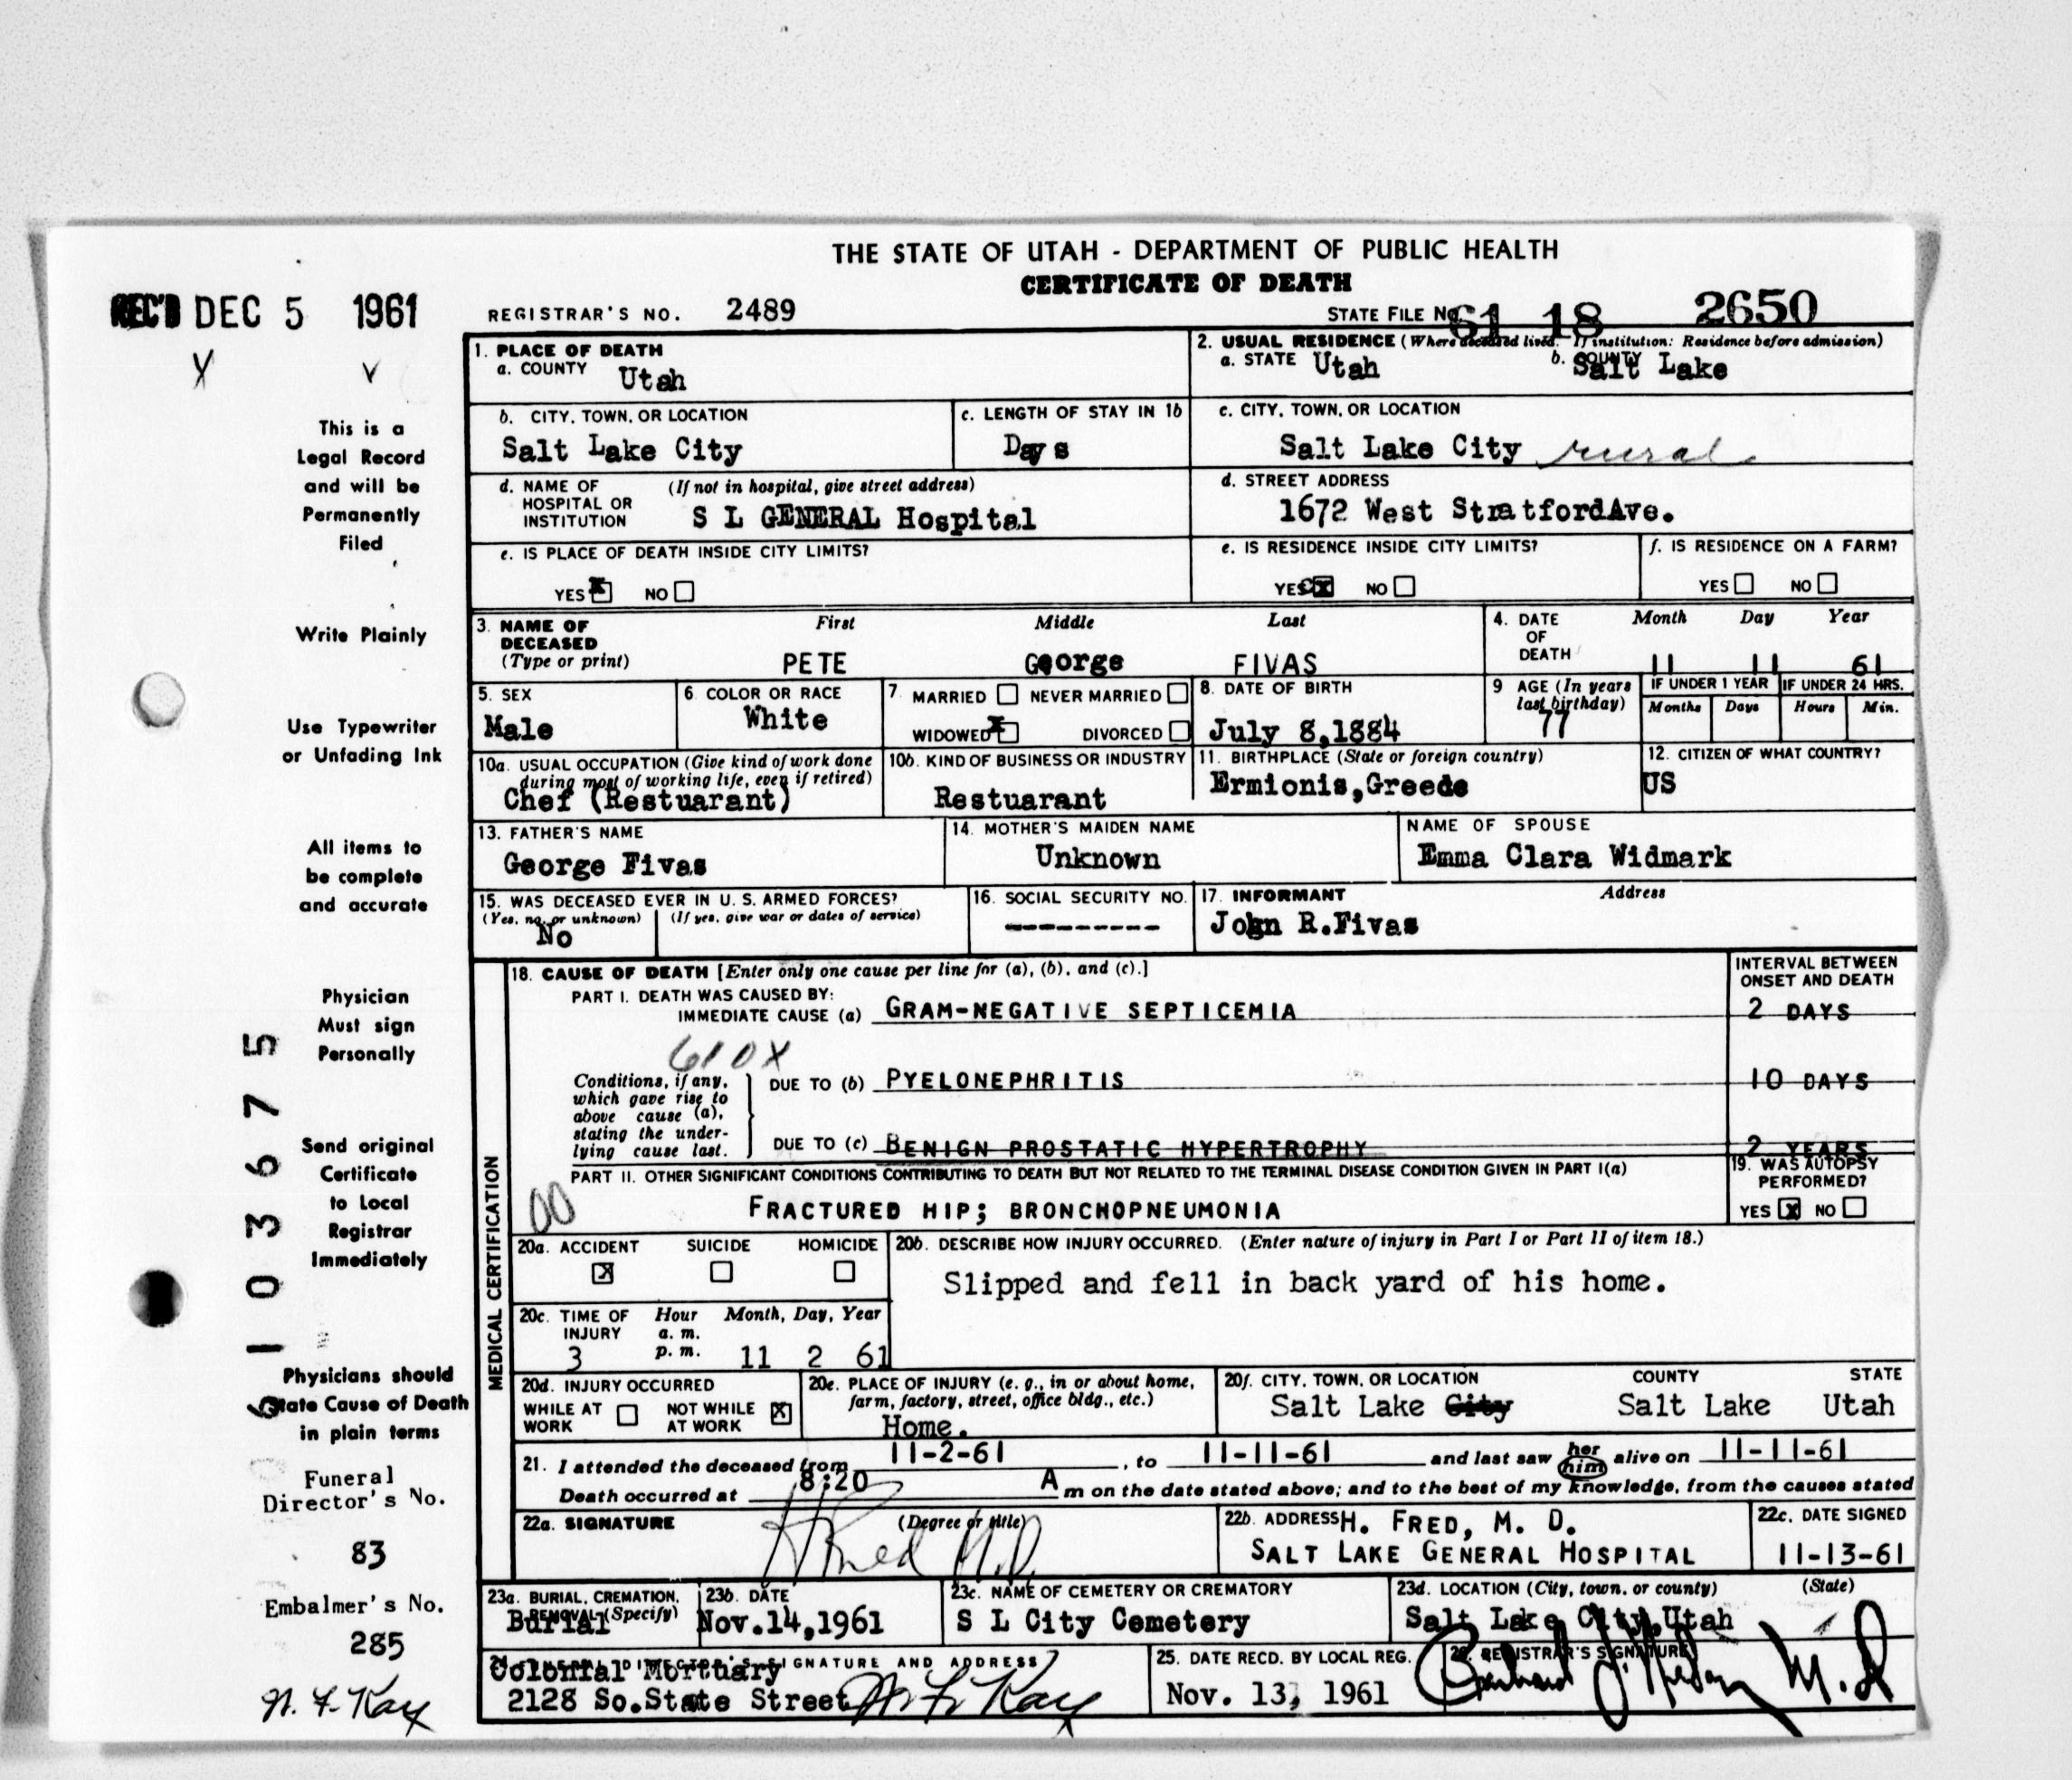 THE STATE OF UTAH - DEPARTMENT OF PUBLIC HEALTH
CERTIFICATE OF DEATH
REC'D DEC 5 1961
REGISTRAR'S NO. 2489
STATE FILE NO. 61 18 2650
1. PLACE OF DEATH
a. COUNTY Utah
2. USUAL RESIDENCE (Where deceased lived. If institution: Residence before admission)
a. STATE Utah b. COUNTY Salt Lake
b. CITY, TOWN, OR LOCATION
Salt Lake City
c. LENGTH OF STAY IN 1b
Days
c. CITY, TOWN, OR LOCATION
Salt Lake City rural
d. NAME OF HOSPITAL OR INSTITUTION (If not in hospital, give street address)
S L GENERAL Hospital
d. STREET ADDRESS
1672 West StratfordAve.
e. IS PLACE OF DEATH INSIDE CITY LIMITS?
YES X NO
e. IS RESIDENCE INSIDE CITY LIMITS?
YES X NO
f. IS RESIDENCE ON A FARM?
YES NO
3. NAME OF DECEASED (Type or print)
First Middle Last
PETE George FIVAS
4. DATE OF DEATH
Month Day Year
11 11 61
5. SEX
Male
6. COLOR OR RACE
White
7. MARRIED NEVER MARRIED
WIDOWED X DIVORCED
8. DATE OF BIRTH
July 8,1884
9 AGE (In years last birthday)
77
IF UNDER 1 YEAR IF UNDER 24 HRS.
Months Days Hours Min.
10a. USUAL OCCUPATION (Give kind of work done during most of working life, even if retired)
Chef (Restuarant)
10b. KIND OF BUSINESS OR INDUSTRY
Restuarant
11. BIRTHPLACE (State or foreign country)
Ermionis,Greede
12. CITIZEN OF WHAT COUNTRY?
US
13. FATHER'S NAME
George Fivas
14. MOTHER'S MAIDEN NAME
Unknown
NAME OF SPOUSE
Emma Clara Widmark
15. WAS DECEASED EVER IN U. S. ARMED FORCES?
(Yes, no, or unknown) (If yes, give war or dates of service)
No
16. SOCIAL SECURITY NO.
---------
17. INFORMANT Address
John R.Fivas
MEDICAL CERTIFICATION
18. CAUSE OF DEATH [Enter only one cause per line for (a), (b), and (c).]
INTERVAL BETWEEN ONSET AND DEATH
PART I. DEATH WAS CAUSED BY:
IMMEDIATE CAUSE (a) GRAM-NEGATIVE SEPTICEMIA 2 DAYS
610X
Conditions, if any, which gave rise to above cause (a), stating the underlying cause last.
DUE TO (b) PYELONEPHRITIS 10 DAYS
DUE TO (c) BENIGN PROSTATIC HYPERTROPHY 2 YEARS
PART II. OTHER SIGNIFICANT CONDITIONS CONTRIBUTING TO DEATH BUT NOT RELATED TO THE TERMINAL DISEASE CONDITION GIVEN IN PART I(a)
00
FRACTURED HIP; BRONCHOPNEUMONIA
19. WAS AUTOPSY PERFORMED?
YES X NO
20a. ACCIDENT SUICIDE HOMICIDE
X
20b. DESCRIBE HOW INJURY OCCURRED. (Enter nature of injury in Part I or Part II of item 18.)
Slipped and fell in back yard of his home.
20c. TIME OF INJURY Hour Month, Day, Year
a. m.
3 p. m. 11 2 61
20d. INJURY OCCURRED
WHILE AT WORK NOT WHILE AT WORK X
20e. PLACE OF INJURY (e. g., in or about home, farm, factory, street, office bldg., etc.)
Home.
20f. CITY, TOWN, OR LOCATION COUNTY STATE
Salt Lake City Salt Lake Utah
21. I attended the deceased from 11-2-61, to 11-11-61 and last saw her him alive on 11-11-61
Death occurred at 8:20 A m on the date stated above; and to the best of my knowledge, from the causes stated
22a. SIGNATURE (Degree or title)
H Fred M.D.
22b. ADDRESS H. FRED, M. D.
SALT LAKE GENERAL HOSPITAL
22c. DATE SIGNED
11-13-61
23a. BURIAL, CREMATION, REMOVAL (Specify)
Burial
23b. DATE
Nov.14,1961
23c. NAME OF CEMETERY OR CREMATORY
S L City Cemetery
23d. LOCATION (City, town, or county) (State)
Salt Lake City,Utah
SIGNATURE AND ADDRESS
Colonial Mortuary
2128 So.State Street N. F. Kay
25. DATE RECD. BY LOCAL REG.
Nov. 13, 1961
26. REGISTRAR'S SIGNATURE
M.D
This is a
Legal Record
and will be
Permanently
Filed
Write Plainly
Use Typewriter
or Unfading Ink
All items to
be complete
and accurate
Physician
Must sign
Personally
Send original
Certificate
to Local
Registrar
Immediately
Physicians should
State Cause of Death
in plain terms
Funeral
Director's No.
83
Embalmer's No.
285
N. F. Kay
6103675